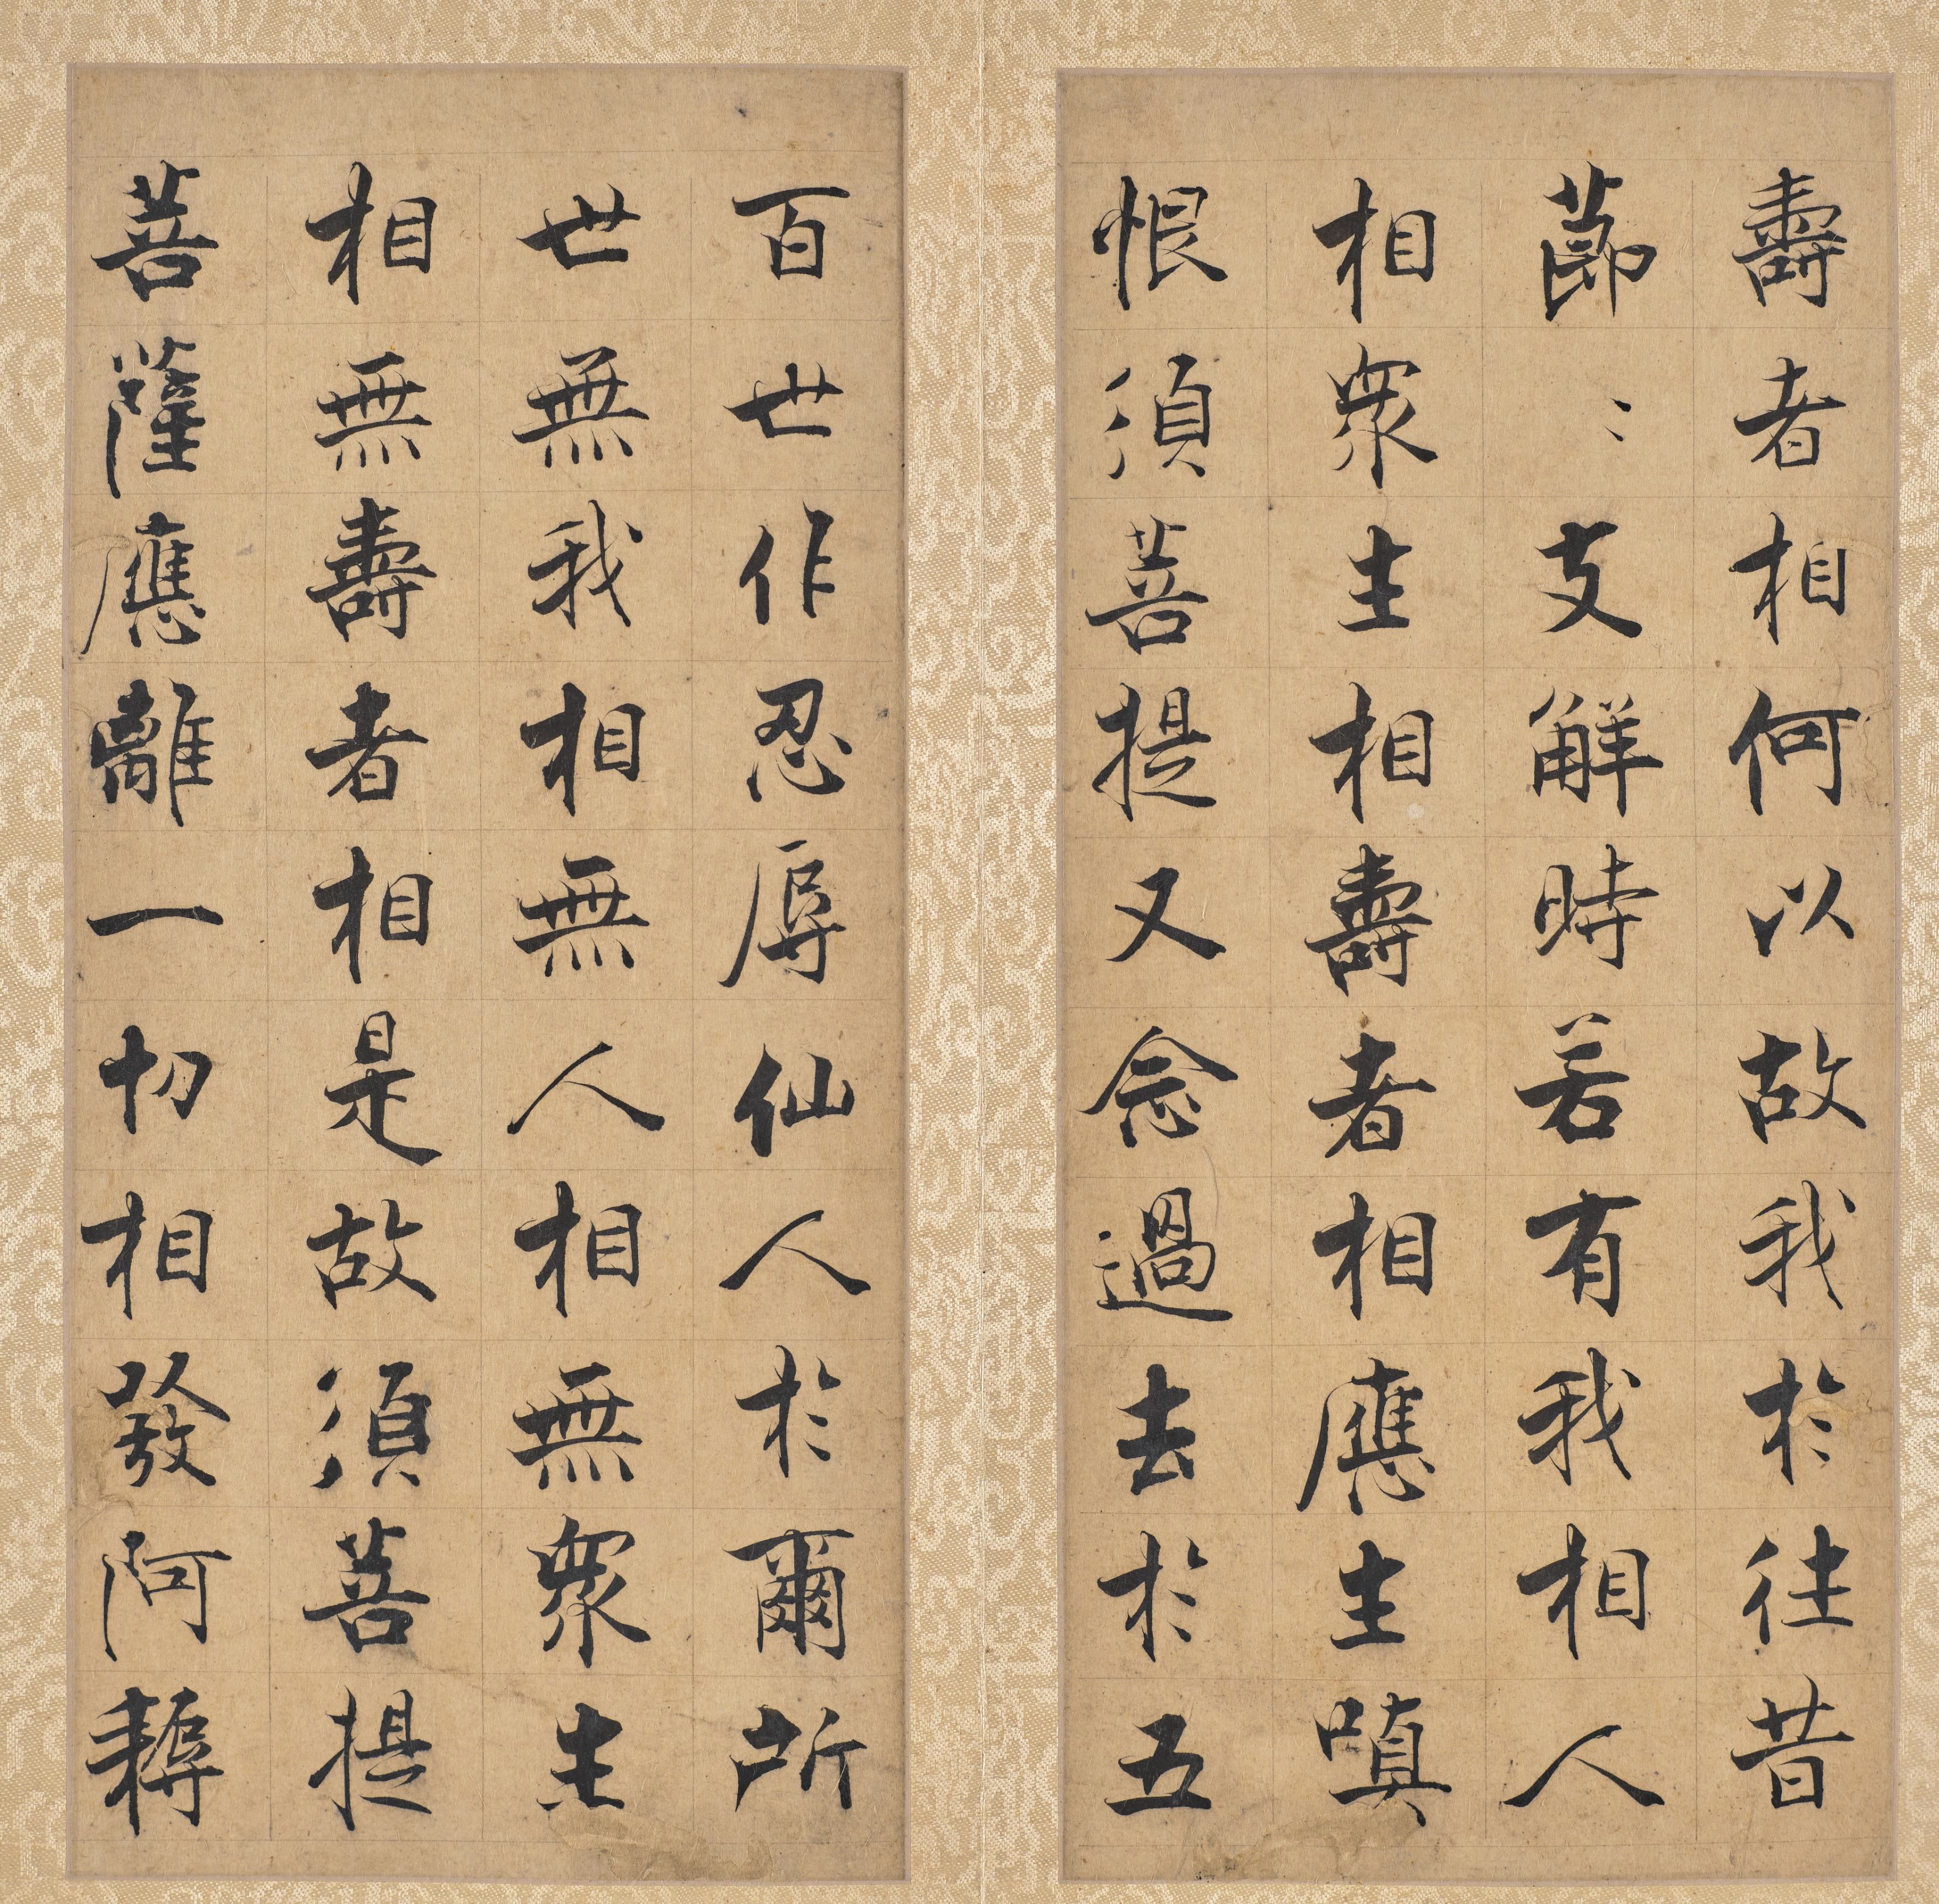 壽者相何以故我於往昔
節〻支解時若有我相人
相衆生相壽者相應生嗔
恨須菩提又念過去於五
百世作忍辱仙人於爾所
世無我相無人相無衆生
相無壽者相是故須菩提
菩薩應離一切相發阿耨